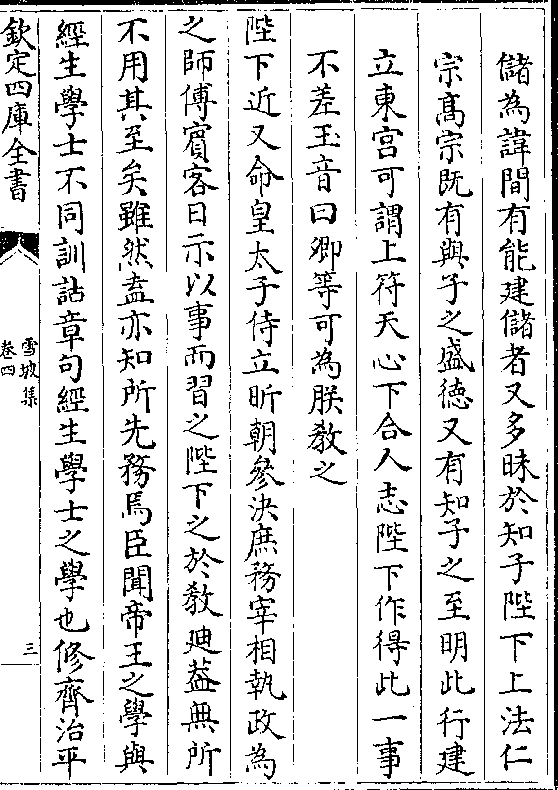 儲為諱間有能建儲者又多昧於知子陛下上法仁
宗髙宗既有與子之盛徳又有知子之至明此行建
立東宫可謂上符天心下合人志陛下作得此一事
不差玉音曰卿等可為朕教之
陛下近又命皇太子侍立昕朝參決庶務宰相執政為
之師傅賓客日示以事而習之陛下之於教廸葢無所
不用其至矣雖然盍亦知所先務焉臣聞帝王之學與
經生學士不同訓詁章句經生學士之學也修齊治平
欽定四庫全書
雪坡集
卷四
三